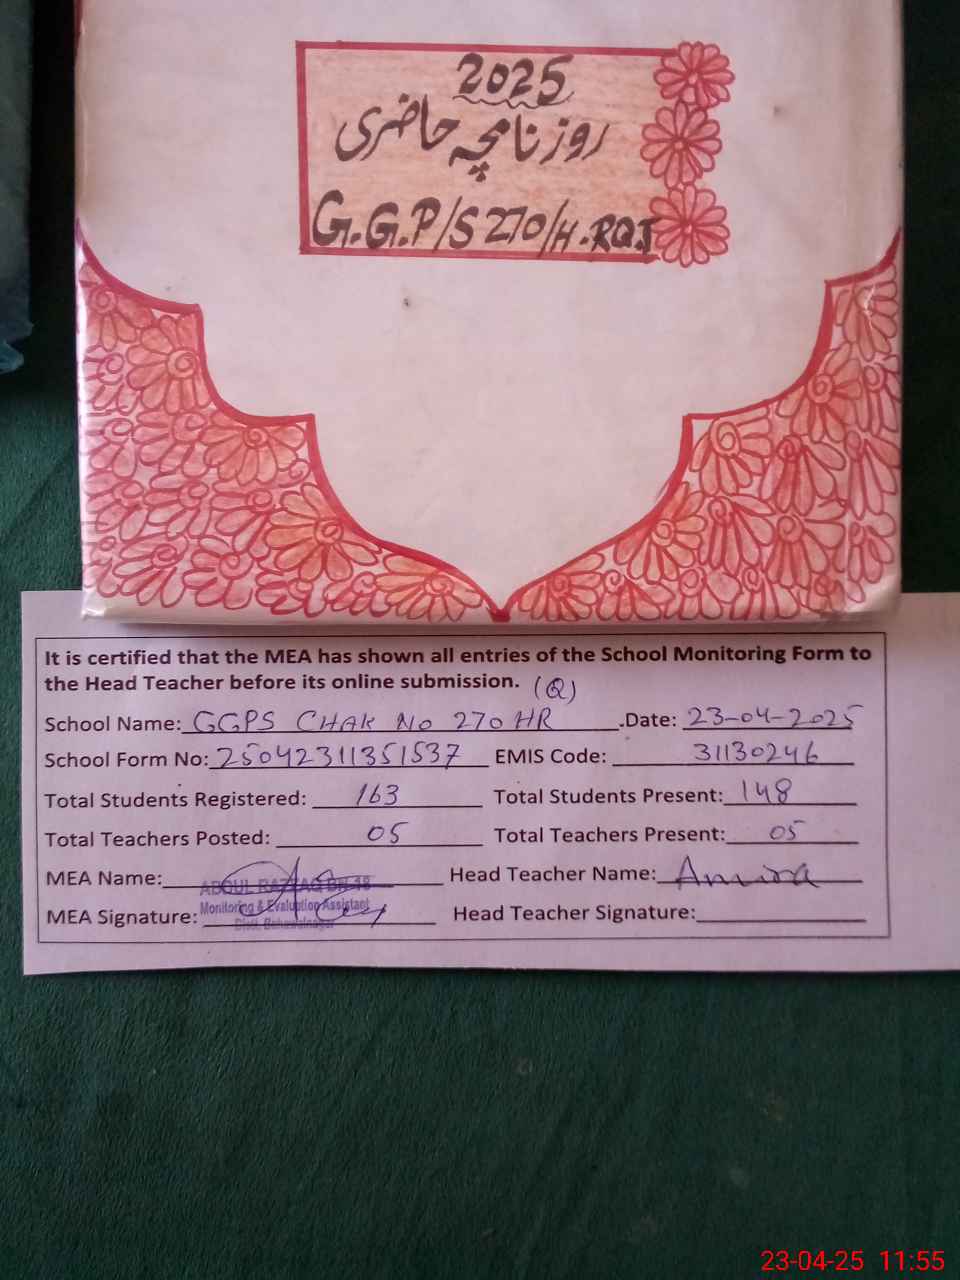 2025
روزنامچہ حاضری
G.G.P/S 270/H.RQ.I
It is certified that the MEA has shown all entries of the School Monitoring Form to
the Head Teacher before its online submission. (Q)
School Name: GGPS CHAK NO 270 HR .Date: 23-04-2025
School Form No: 25042311351537 EMIS Code: 31130246
Total Students Registered: 163 Total Students Present: 148
Total Teachers Posted: 05 Total Teachers Present: 05
MEA Name: ABDUL RAZZAQ BN-18 Head Teacher Name:
Monitoring & Evaluation Assistant
MEA Signature: Head Teacher Signature:
Distt. Bahawalnagar
23-04-25 11:55